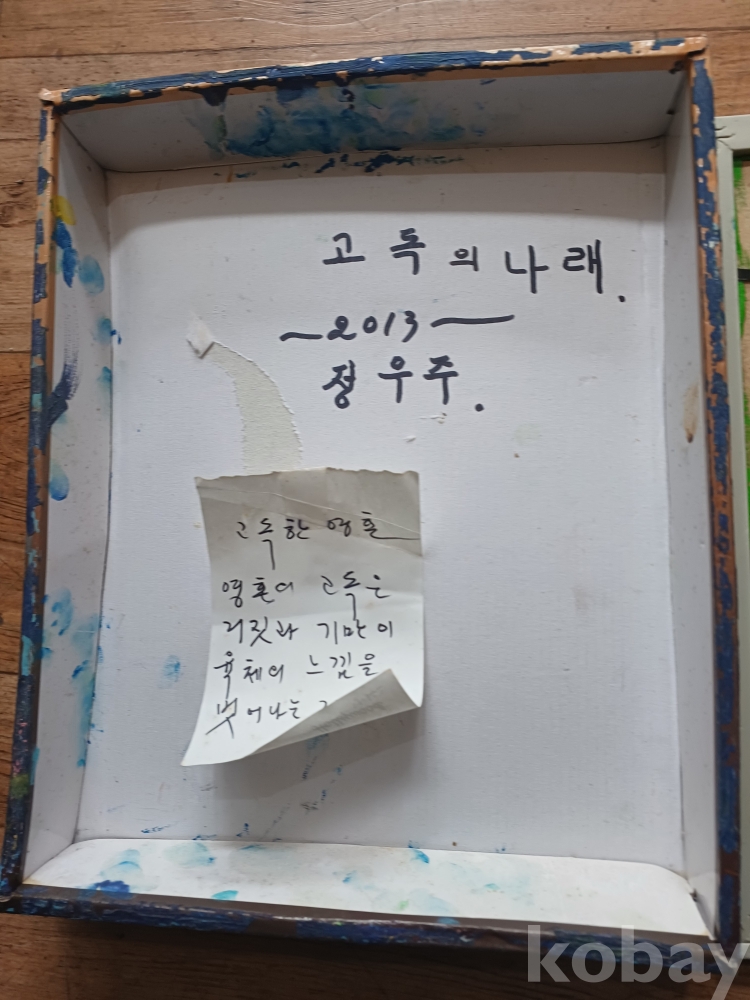 고독의 나래.
~2013~
정우주.
고독한 영혼
영혼의 고독은
거짓과 기만이
육체의 느낌을
벗어나는
kobay